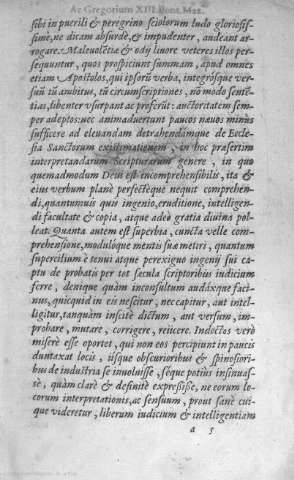 Ac Gregorium XIII. Pont. Max.
sibi in puerili & peregrino sciolorum ludo gloriosis-
simè, ne dicam absurdè, & impudenter, audeant ar-
rogare. Maleuolẽtia & odij liuore veteres illos per-
sequuntur, quos prospiciunt summam, apud omnes
etiam Apostolos, qui ipsorũ verba, integrósque ver-
suũ tũ ambitus, tũ circumscriptiones, nõ modo sentẽ-
tias, libenter vsurpant ac proferũt: auctoritatem sem-
per adeptos: nec animaduertunt paucos nouos minùs
sufficere ad eleuandam detrahendámque de Eccle-
sia Sanctorum existimationem, in hoc præsertim
interpretandarum Scripturarum genere, in quo
quemadmodum Deus est incomprehensibilis, ita &
eius verbum planè perfectéque nequit comprehen-
di, quantumuis quis ingenio, eruditione, intelligen-
di facultate & copia, atque adeò gratia diuina pol-
leat. Quanta autem est superbia, cuncta velle com-
prehensione, modulóque mentis suæ metiri, quantum
supercilium è tenui atque perexiguo ingenij sui ca-
ptu de probatis per tot sæcula scriptoribus iudicium
ferre, denique quàm inconsultum audáxque faci-
nus, quicquid in eis nescitur, nec capitur, aut intel-
ligitur, tanquàm inscitè dictum, aut versum, im-
probare, mutare, corrigere, reiicere. Indoctos verò
miserè esse oportet, qui non eos percipiunt in paucis
duntaxat locis, iisque obscurioribus & spinosiori-
bus de industria se inuoluisse, séque potiùs insinuas-
sè, quàm clarè & definitè expreßisse, ne eorum lo-
corum interpretationis, ac sensuum, prout sanè cui-
que videretur, liberum iudicium & intelligentiam
a 5